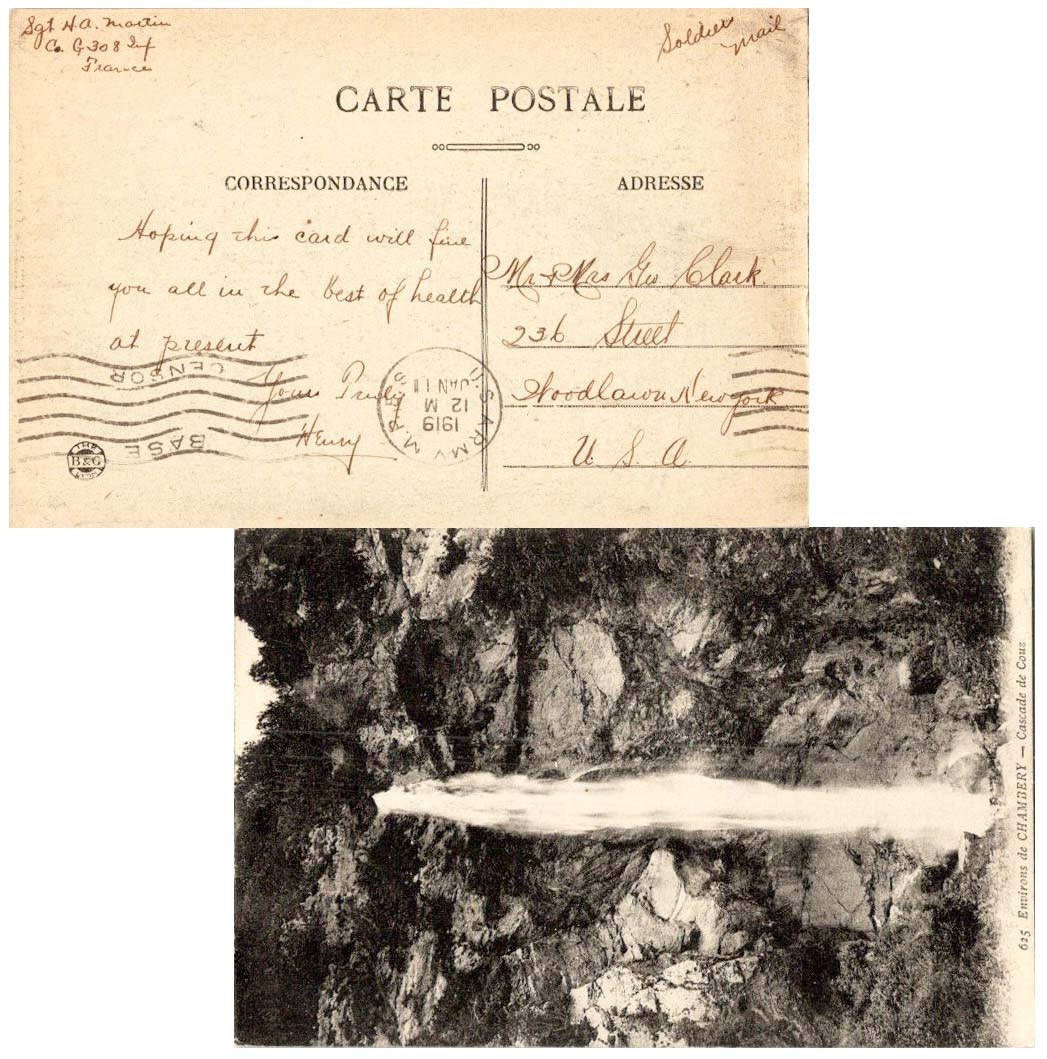 Sgt H.A. Martin
Co. G 308 Inf
France
Soldier mail
CARTE POSTALE
CORRESPONDANCE
ADRESSE
Hoping this card will fine
you all in the best of health
at present
Yours Truly
Henry
Mr & Mrs Geo Clark
236 Street
Woodlawn New York
U. S. A.
U.S. ARMY M.P.
JAN 11
12 M
1919
BASE CENSOR
B & G
625 Environs de CHAMBERY — Cascade de Couz